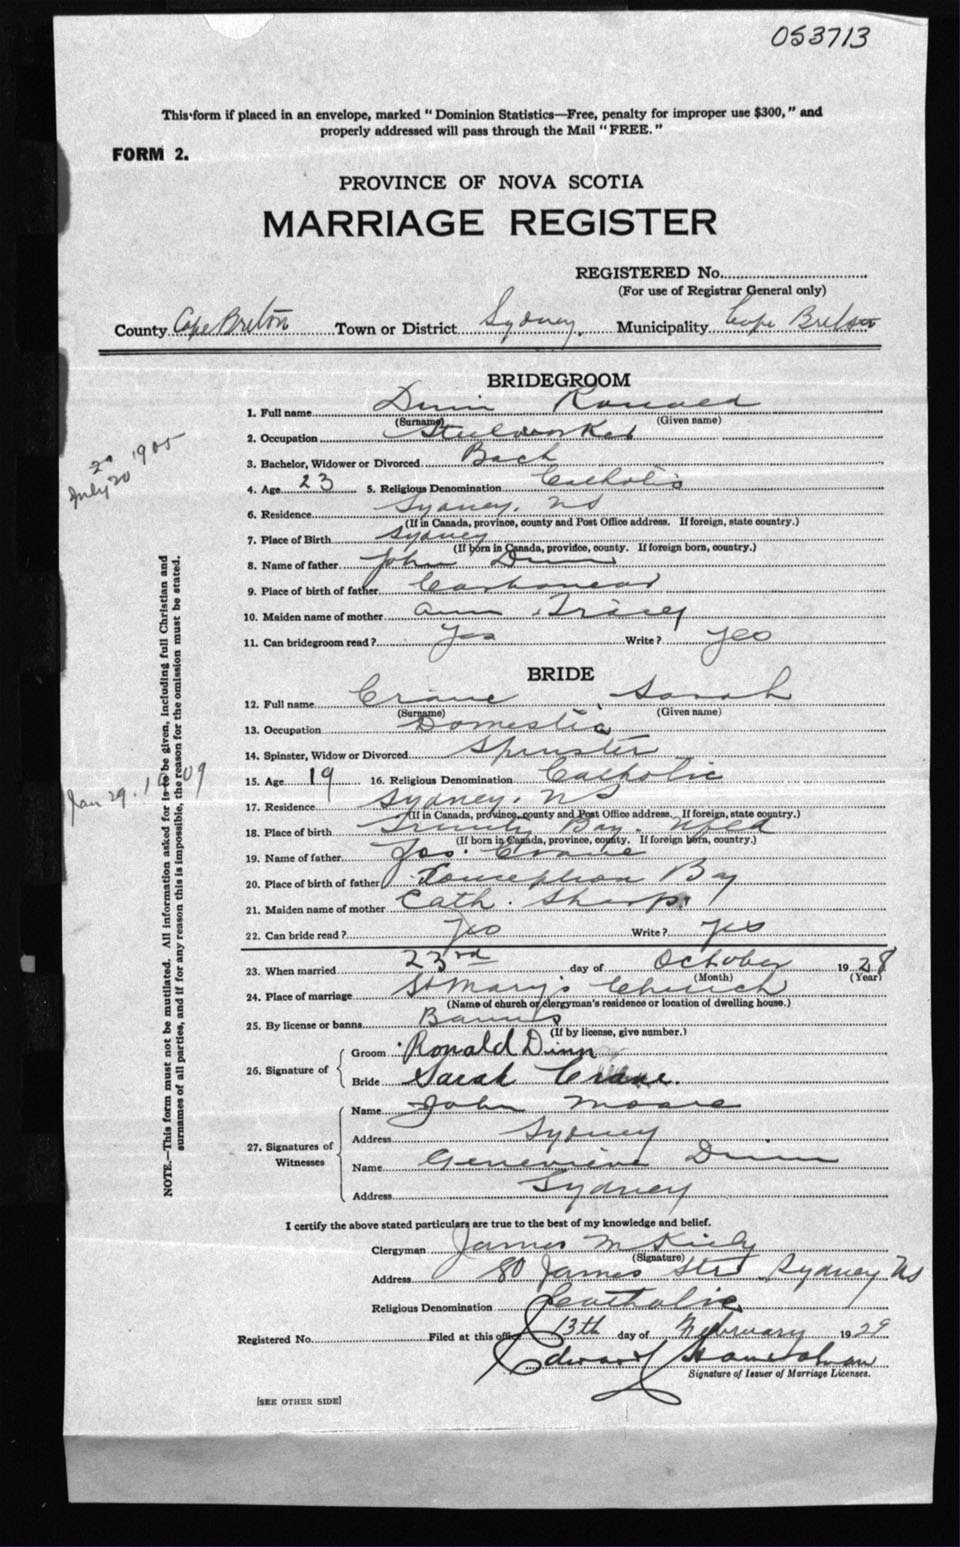 053713
This form if placed in an envelope, marked "Dominion Statistics—Free, penalty for improper use $300," and
properly addressed will pass through the Mail "FREE."
FORM 2.
PROVINCE OF NOVA SCOTIA
MARRIAGE REGISTER
REGISTERED No.
(For use of Registrar General only)
County Cape Breton Town or District Sydney. Municipality Cape Breton
BRIDEGROOM
1. Full name Dinn Ronald
(Surname) (Given name)
2. Occupation Steelworker
3. Bachelor, Widower or Divorced Bach
4. Age 23 5. Religious Denomination Catholic
6. Residence Sydney, NS
(If in Canada, province, county and Post Office address. If foreign, state country.)
7. Place of Birth Sydney
(If born in Canada, province, county. If foreign born, country.)
8. Name of father John Dinn
9. Place of birth of father Carbonear
10. Maiden name of mother Ann Tracey
11. Can bridegroom read? Yes Write? Yes
July 20 1905
BRIDE
12. Full name Crane Sarah
(Surname) (Given name)
13. Occupation Domestic
14. Spinster, Widow or Divorced Spinster
15. Age 19 16. Religious Denomination Catholic
17. Residence Sydney, NS
(If in Canada, province, county and Post Office address. If foreign, state country.)
18. Place of birth Trinity Bay. Nfld
(If born in Canada, province, county. If foreign born, country.)
19. Name of father Jos. Crane
20. Place of birth of father Conception Bay
21. Maiden name of mother Cath. Sharp
22. Can bride read? Yes Write? Yes
Jan 29. 1909
23. When married 23rd day of October 1928
(Month) (Year)
24. Place of marriage St Mary's Church
(Name of church or clergyman's residence or location of dwelling house.)
25. By license or banns Banns
(If by license, give number.)
26. Signature of
Groom Ronald Dinn
Bride Sarah Crane.
27. Signatures of Witnesses
Name John Moore
Address Sydney
Name Genevieve Dinn
Address Sydney
I certify the above stated particulars are true to the best of my knowledge and belief.
Clergyman James M Kiely
(Signature)
Address 80 James Str Sydney NS
Religious Denomination Catholic
Registered No. Filed at this office 13th day of February 1929
Edward
Signature of Issuer of Marriage Licenses.
[SEE OTHER SIDE]
NOTE.—This form must not be mutilated. All information asked for is to be given, including full Christian and
surnames of all parties, and if for any reason this is impossible, the reason for the omission must be stated.